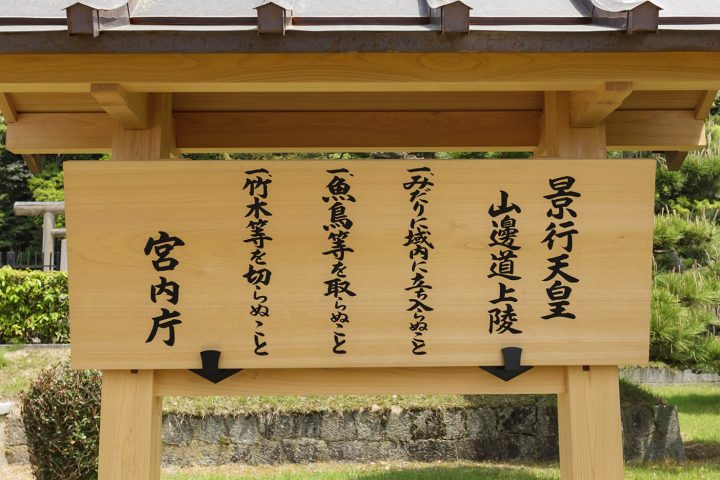 景行天皇
山邊道上陵
一、みだりに域内に立ち入らぬこと
一、魚鳥等を取らぬこと
一、竹木等を切らぬこと
宮内庁